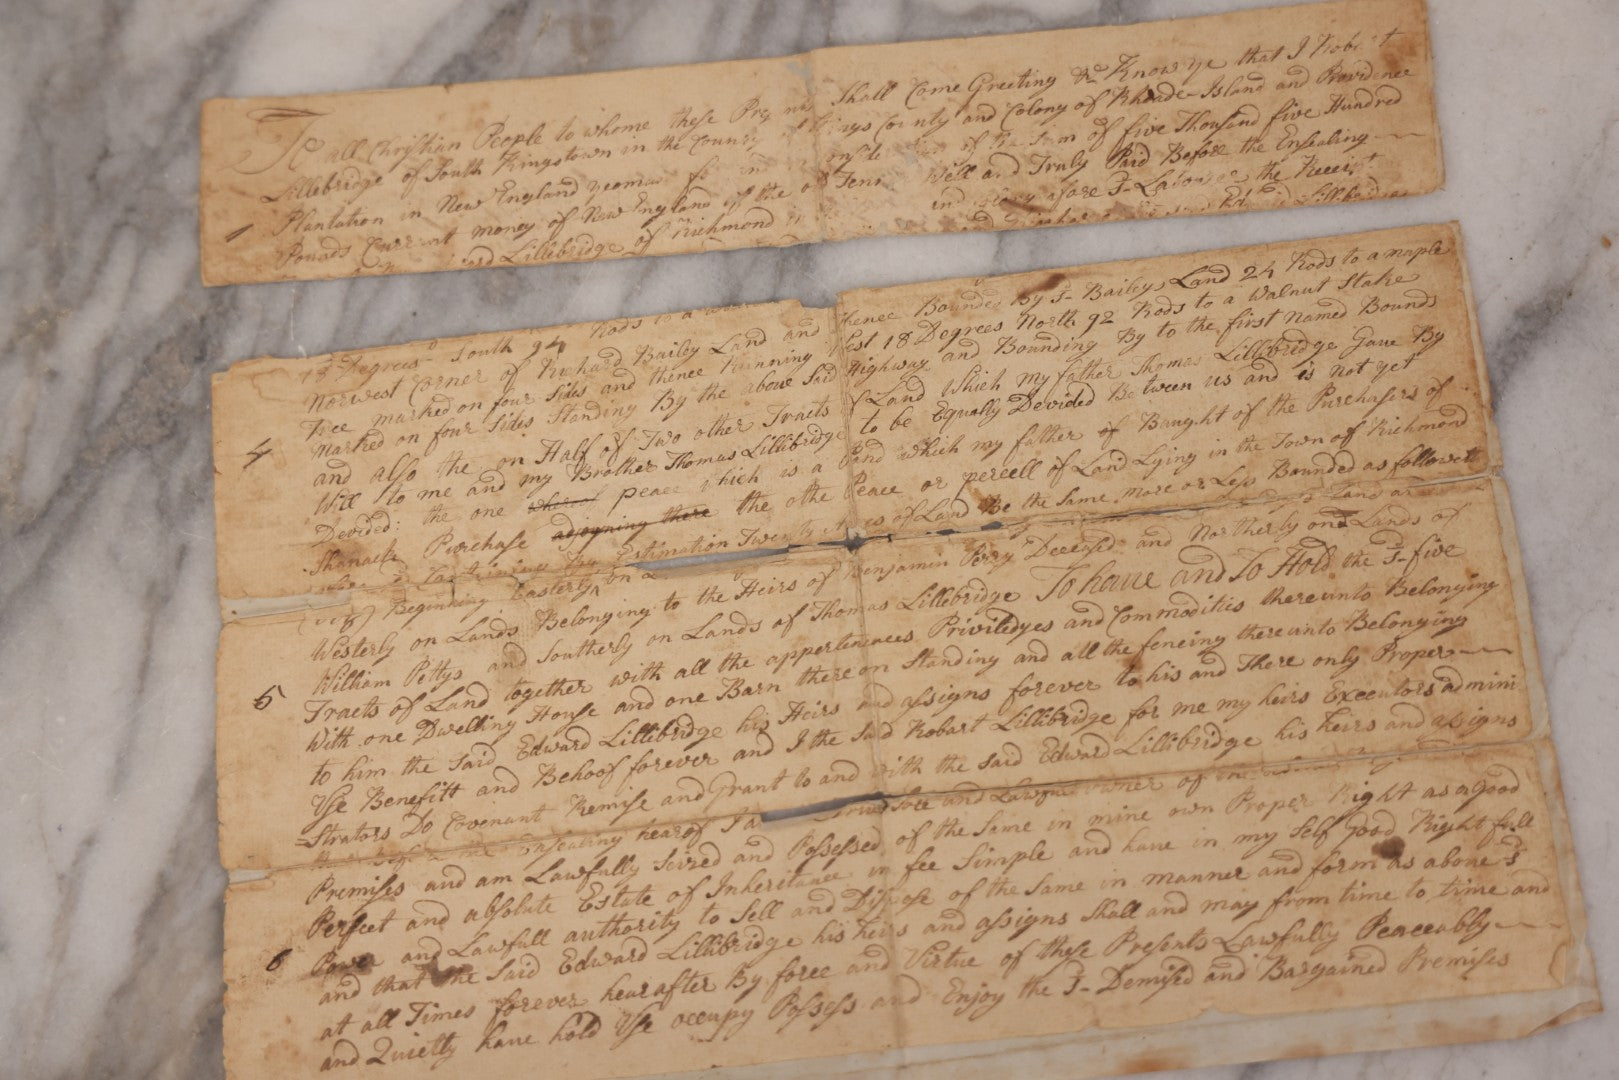 To all Christian People to whome these Shall Come Greeting &c Know ye that I Robert
Lillebridge of South Kingstown in the County of Kings County and Colony of Rhoade-Island and Providence
Plantation in New England yeoman for in of Sum of five Thousand five Hundred
1
Pounds Current money of New England of the old Tenor Well and Truly Paid Before the Ensealing
Lillebridge of Richmond in afore sd Labourer the Receipt
Edward Lillibridge
18 Degrees South 94 Rods to a
Norwest Corner of Richard Bailey Land and thence Bounded By sd Baileys Land 24 Rods to a maple
Tree marked on four sides and thence Running West 18 Degrees North 92 Rods to a Walnut Stake
4
Marked on four Sides Standing By the above Said Highway and Bounding By to the first named Bounds
and also the on Half of Two other Tracts of Land Which my father Thomas Lillibridge Gave By
Will to me and my Brother Thomas Lillibridge to be Equally Devided Between us and is not yet
Devided: the one peace which is a Pond which my father Baught of the Purchasers of
Shanack Purchase adjoyning there the othe Peace or percell of Land Lying in the Town of Richmond
By Estimation Twenty of Land Be the Same more or Less Bounded as followeth
Beginning Easterly on
Westerly on Lands Belonging to the Heirs of Benjamin Perry Deceased and Northerly on Lands of
William Pettys and Southerly on Lands of Thomas Lillebridge To have and To Hold the sd five
5
Tracts of Land together with all the appertenences Priviledges and Commodities thereunto Belonging
With one Dwelling House and one Barn there on Standing and all the fencing thereunto Belonging
to him the Said Edward Lillibridge his Heirs and assigns forever to his and There only Proper
Use Benefitt and Behoof forever and I the Said Robart Lillibridge for me my heirs Executors admini
Strators Do Covenant Remise and Grant to and with the Said Edward Lillibridge his heirs and assigns
Ensealing hearof I am sole and Lawfull owner of
Premises and am Lawfully Seized and Possessed of the Same in mine own Proper Right as a Good
Perfect and absolute Estate of Inheritance in fee Simple and have in my Self Good Right full
6
Power and Lawfull authority to Sell and Dispose of the Same in manner and form as above sd
and that the Said Edward Lillibridge his heirs and assigns Shall and may from time to time and
at all Times forever hearafter By force and Virtue of these Presents Lawfully Peaceably
and Quietly have hold Use occupy Possess and Enjoy the sd Demised and Bargained Premises